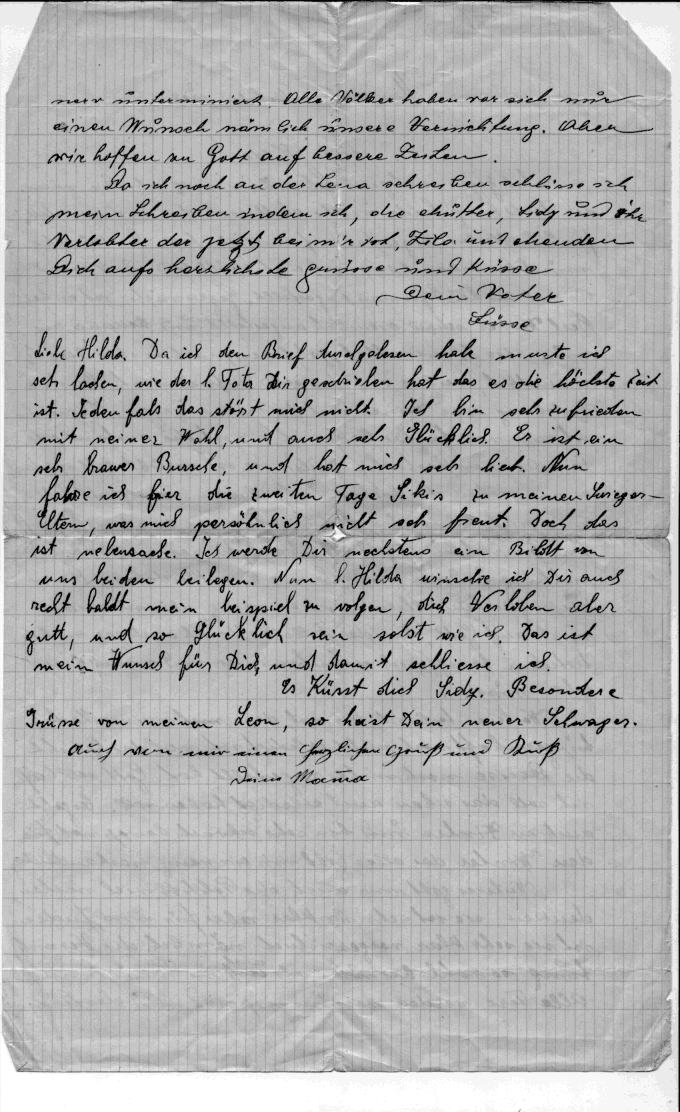 nerv unterminiert. Alle Völker haben vor sich nur
einen Wunsch nämlich unsere Vernichtung. Aber
wir hoffen zu Gott auf bessere Zeiten.
Da ich noch an der Lena schreiben schliesse ich
mein Schreiben indem ich, die Mutter, Sidy und ihr
Verlobter der jetzt bei mir ist, und
Dich aufs herzlichste grüsse und Küsse
Dein Vater
Süsse
Liebe Hilda. Da ich den Brief durchgelesen habe muste ich
seh lachen, wie der l. Tate Dir geschrieben hat das es die höchste Zeit
ist. Jedenfals das stört mich nicht. Ich bin seh zufrieden
mit meiner Wahl, und auch seh Glücklich. Er ist ein
seh brawer Bursche, und hat mich seh lieb. Nun
fahre ich hier die zweiten Tage zu meinen Swieger-
Eltern, was mich persöhnlich nicht seh freut. Doch das
ist nebensache. Ich werde Dir nechstens ein Bildt von
uns beiden beilegen. Nun l. Hilda winsche ich Dir auch
recht baldt mein beispiel zu volgen, dich Verloben aber
gutt, und so Glücklich sein solst wie ich. Das ist
mein Wunsch für Dich, und damit schliesse ich.
Es Küsst dich Sidy. Besondere
Grüsse von meinen Leon, so heist Dein neuer Schwager.
Auch von mir einen herzlichen Gruß und Kuß
Deine Mama